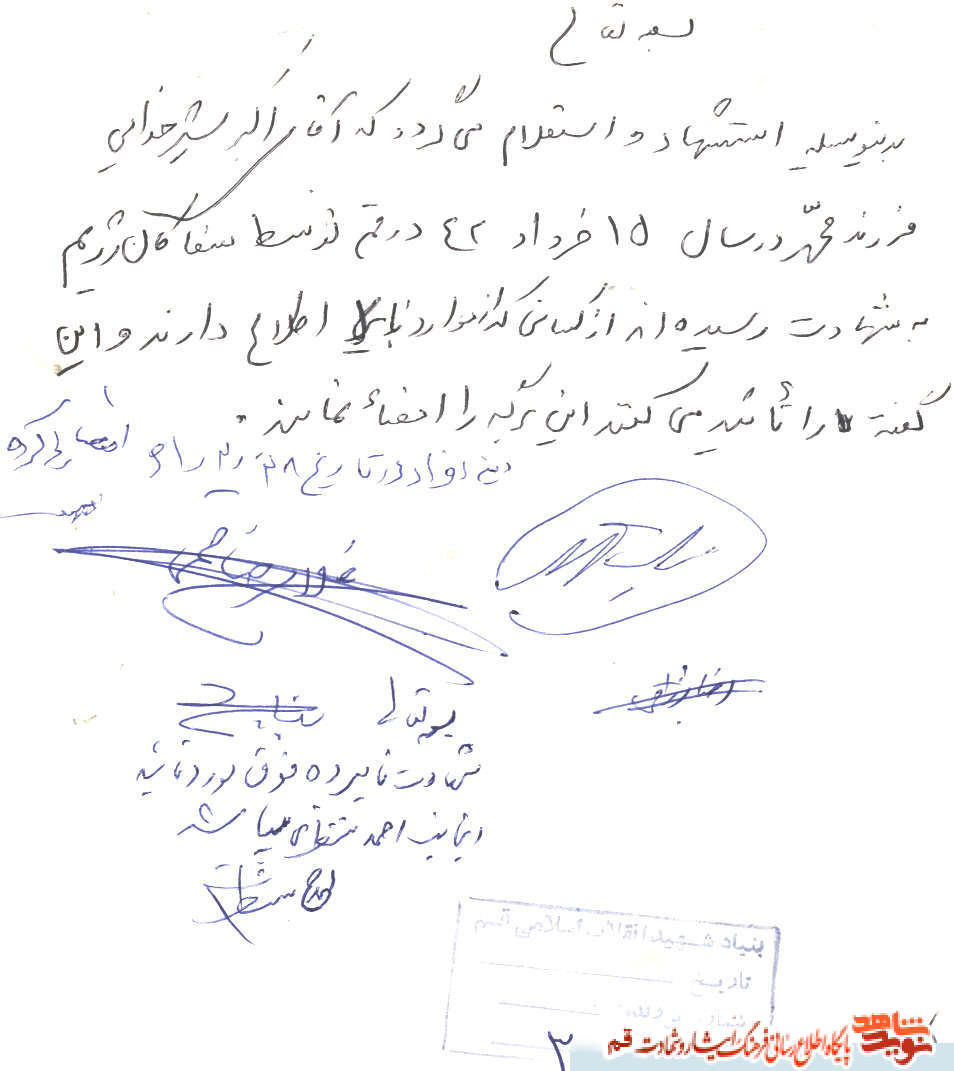 بسمه تعالی
بدینوسیله استشهاد و استعلام می گردد که آقای اکبر شیرخدایی
فرزند محمّد در سال ۱۵ خرداد ۴۲ در قم توسط سفاکان رژیم
به شهادت رسیده اند از کسانی که از موارد بالا اطلاع دارند و این
گفته را تأئید می کنند این برگه را امضاء نمایند.
در تاریخ امضا کرده
غلامرضا
بسمه تعالی
شهادت نامبرده فوق مورد تائید
اینجانب احمد منتظری میباشد
بنیاد شهید انقلاب اسلامی قم
تاریخ
شماره پرونده
۳
نوید شاهد
پایگاه اطلاع رسانی فرهنگ ایثار و شهادت قم